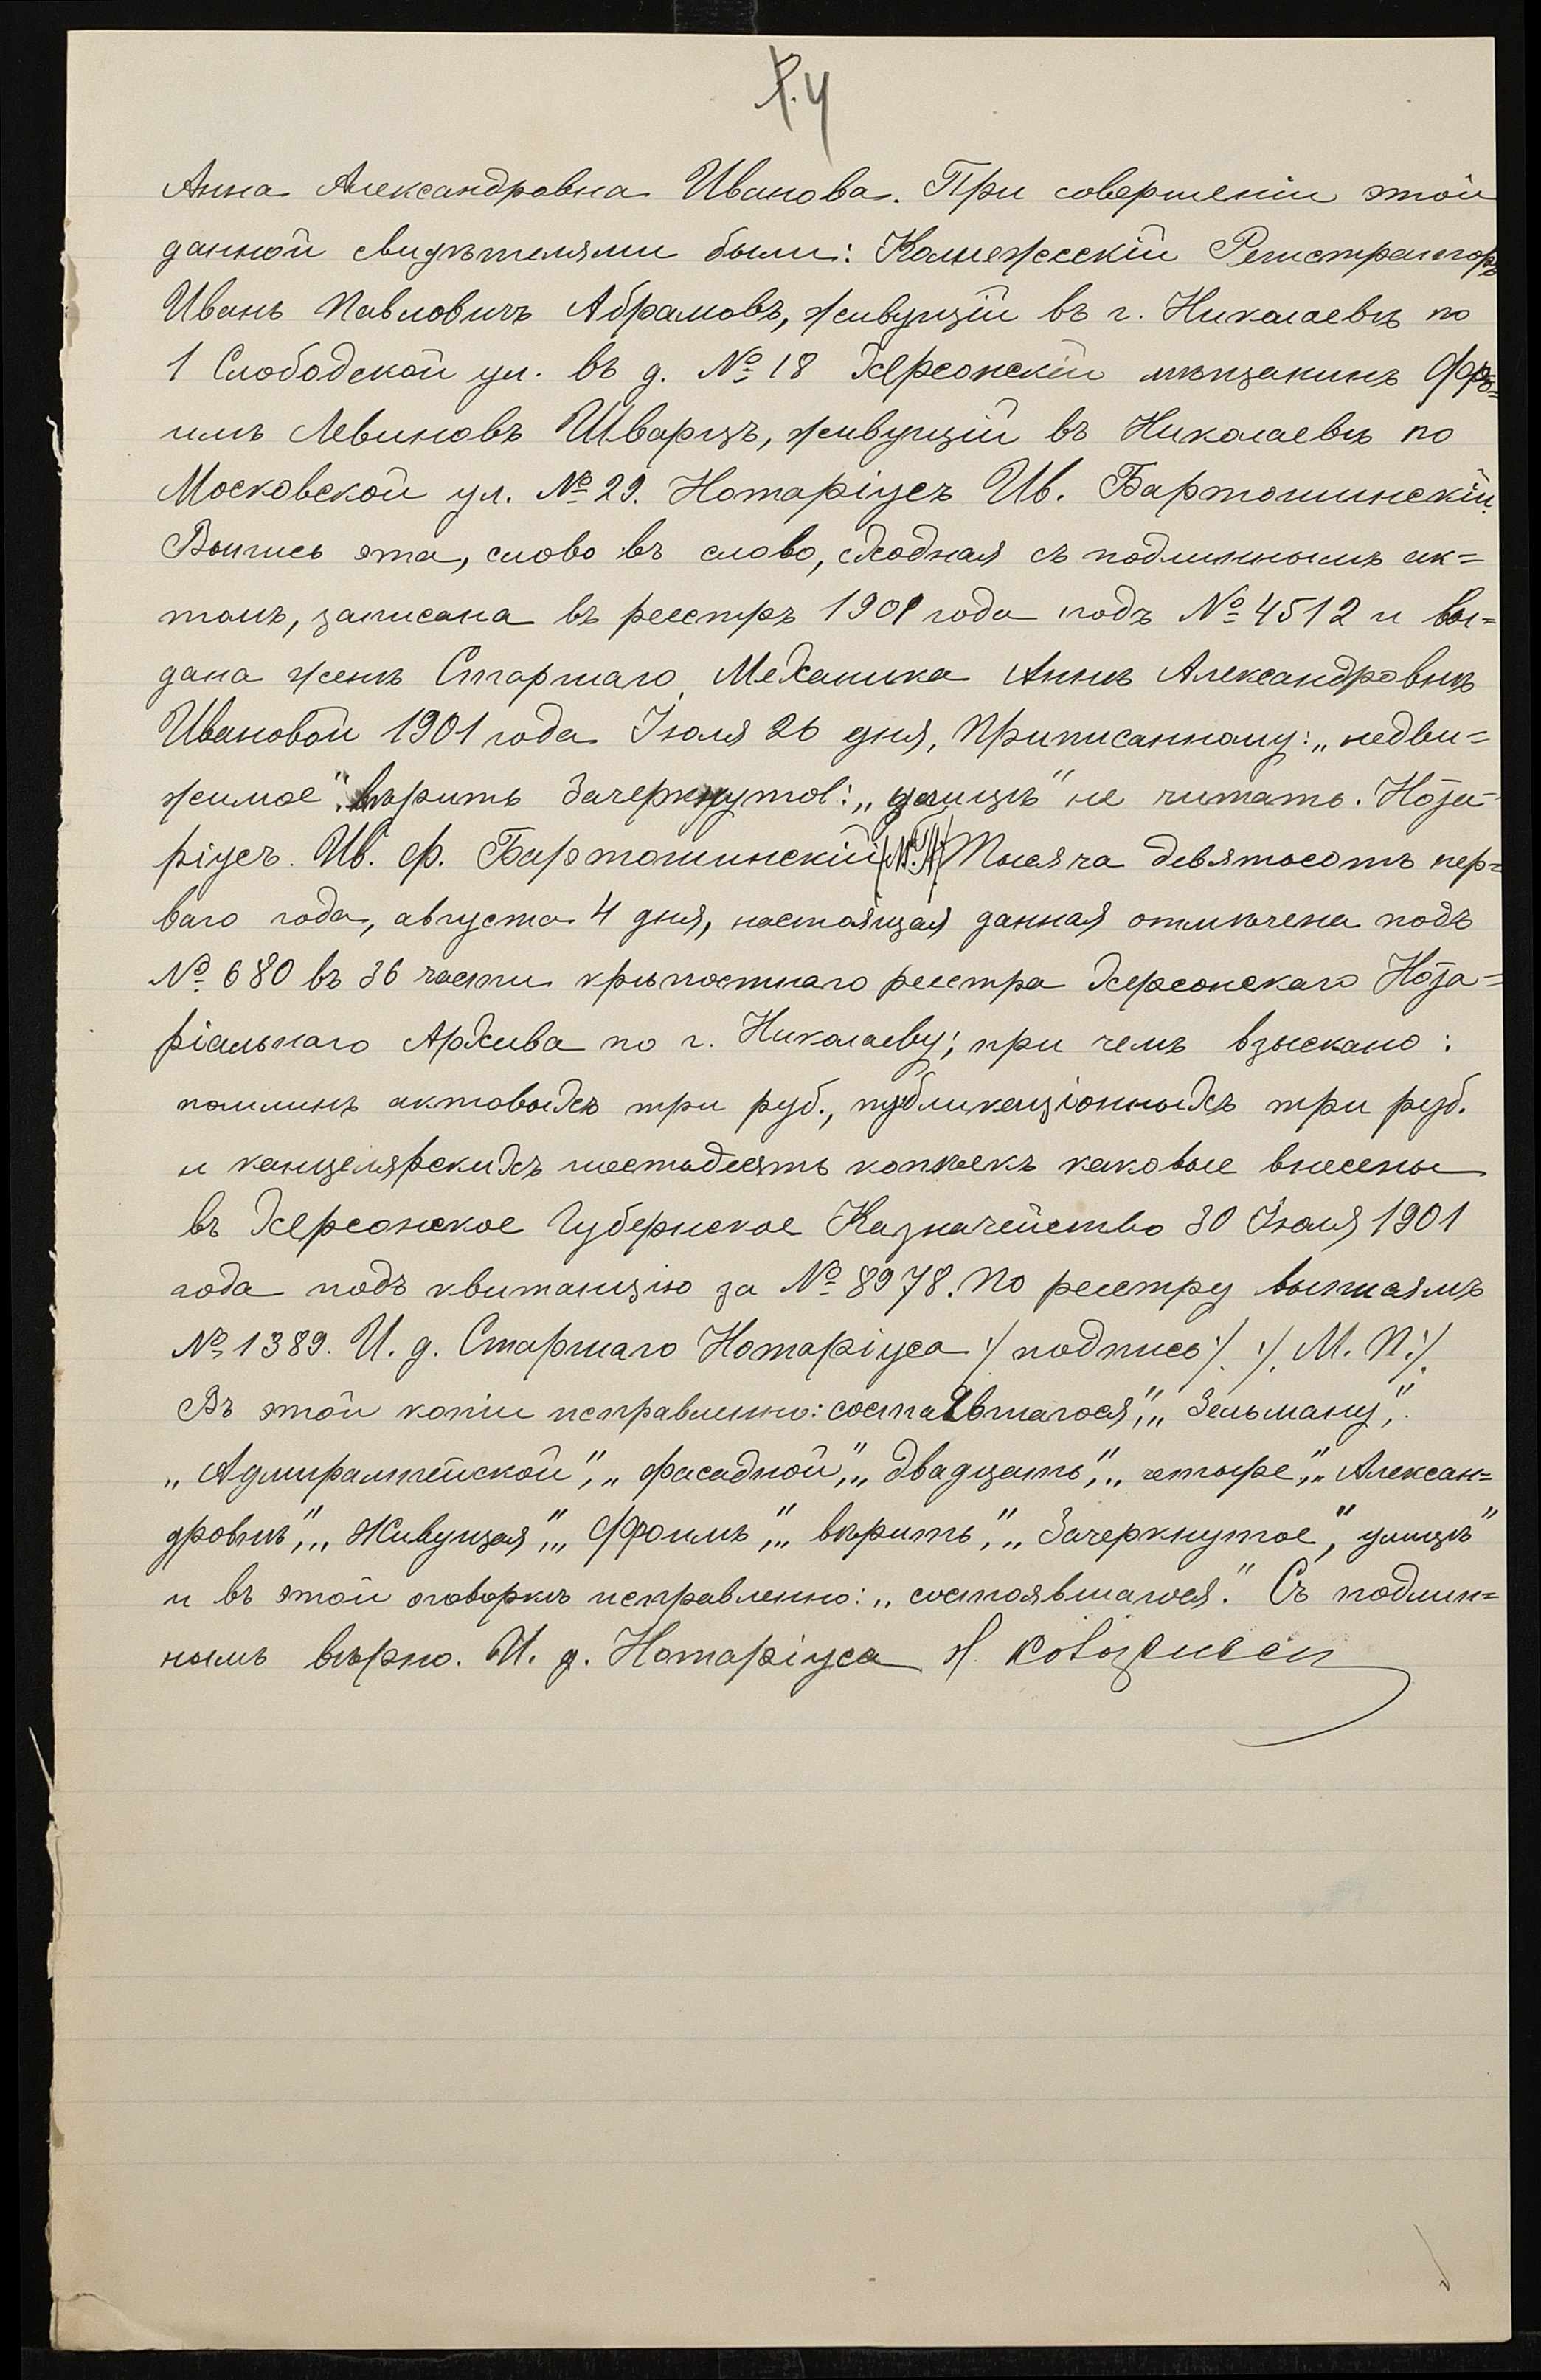 Анна Александровна Иванова. При совершеніи этой
данной свидѣтелями были: Коллежскій Регистраторъ
Иванъ Павловичъ Абрамовъ, живущій въ г. Николаевѣ по
1 Слободской ул. въ д. № 18 Херсонскій мѣщанинъ Фро=
имъ Левиновъ Шварцъ, живущій въ Николаевѣ по
Московской ул. № 29. Нотаріусъ Ив. Бартошинскій.
Выпись эта, слово въ слово, сходная съ подлиннымъ ак=
томъ, записана въ реестръ 1901 года подъ № 4512 и вы=
дана женѣ Старшаго Механика Аннѣ Александровнѣ
Ивановой 1901 года Іюля 26 дня, Приписанному: „недви=
жимое" вѣрить Зачеркнутое: „улицѣ" не читать. Нота-
ріусъ. Ив. Ф. Бартошинскій (М.П.) Тысяча девятьсотъ пер=
ваго года, августа 4 дня, настоящая данная отмѣчена подъ
№ 680 въ 36 части крѣпостнаго реестра Херсонскаго Нота=
ріальнаго Архива по г. Николаеву; при чемъ взыскано:
пошлинъ актовыхъ три руб., публикаціонныхъ три руб.
и канцелярскихъ шестьдесятъ копѣекъ каковые внесены
въ Херсонское Губернское Казначейство 30 Іюля 1901
года подъ квитанцію за № 8978. По реестру выписямъ
№ 1389. И. д. Старшаго Нотаріуса /подпись/. /. М. П./.
Въ этой копіи исправленно: состоявшагося", „Зельману",
„Адмиралтейской", „фасадной", „двадцать", „четыре", „Алексан=
дровнѣ", „Живущая", „Фроимъ", „вѣрить", „Зачеркнутое", „улицѣ"
и въ этой оговоркѣ исправленно: „состоявшагося." Съ подлин=
нымъ вѣрно. И. д. Нотаріуса